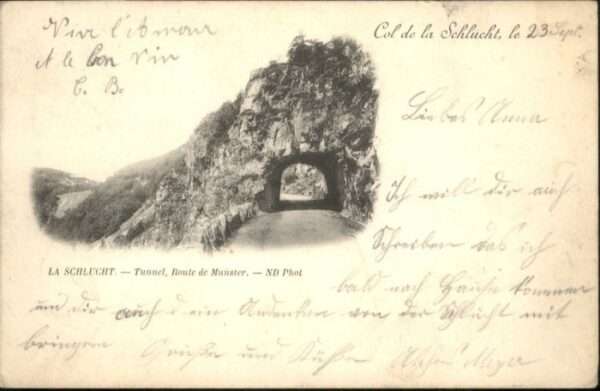 Vive l'Amour
et le bon vin
C. B.
Col de la Schlucht, le 23 Sept.
Liebes Anna
Ich will dir auch
Schreiben das ich
bald nach Hause kommen
und dir auch ein Andenken von der Schlucht mit
bringen Grüße und Küße
Meyer
LA SCHLUCHT. — Tunnel, Route de Munster. — ND Phot